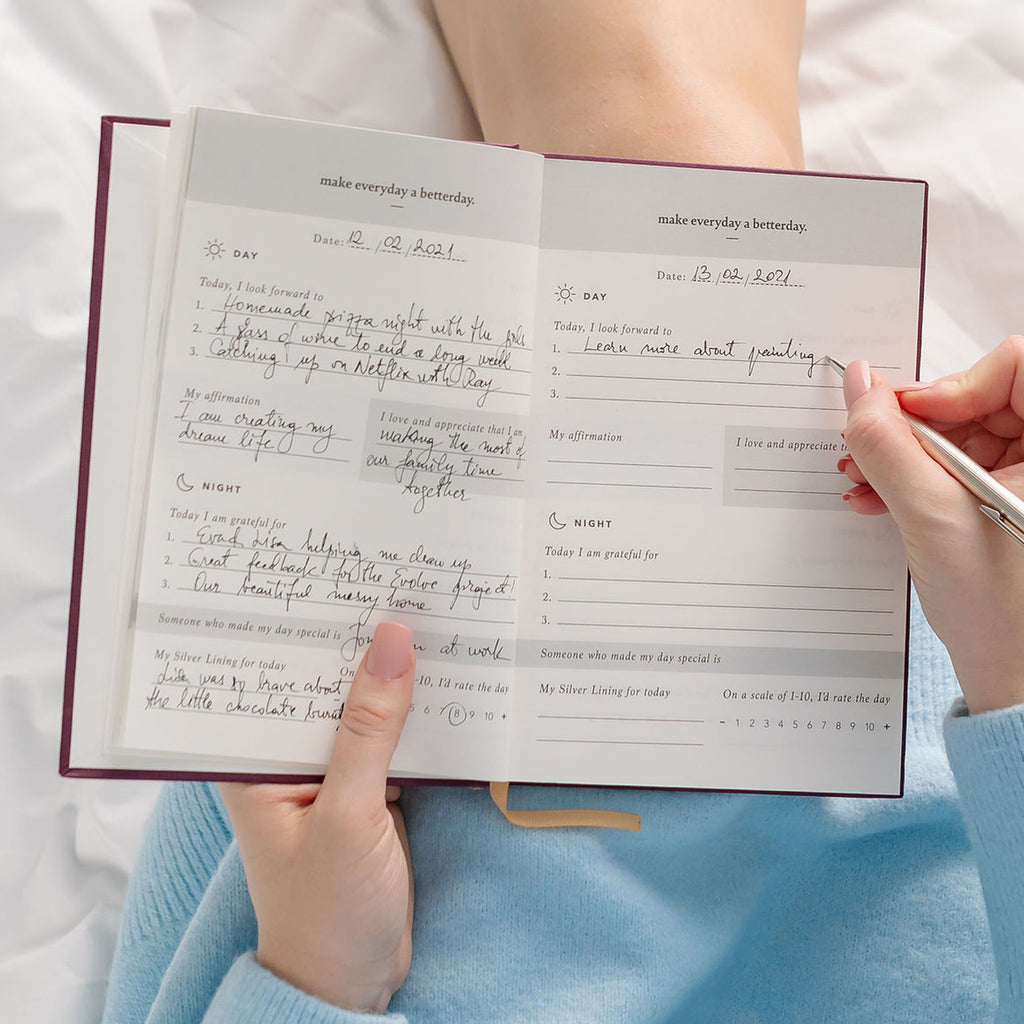 make everyday a betterday.
Date: 12 / 02 / 2021
DAY
Today, I look forward to
1. Homemade pizza night with the girls
2. A glass of wine to end a long week
3. Catching up on Netflix with Ray
My affirmation
I am creating my
dream life
I love and appreciate that I am
making the most of
our family time
together
NIGHT
Today I am grateful for
1. Lisa helping me clean up
2. Great feedback for the Evolve project!
3. Our beautiful messy home
Someone who made my day special is at work
My Silver Lining for today
Lisa was so brave about
the little chocolate
On -10, I'd rate the day
5 6 7 8 9 10 +
make everyday a betterday.
Date: 13 / 02 / 2021
DAY
Today, I look forward to
1. Learn more about painting
2.
3.
My affirmation
I love and appreciate
NIGHT
Today I am grateful for
1.
2.
3.
Someone who made my day special is
My Silver Lining for today
On a scale of 1-10, I'd rate the day
- 1 2 3 4 5 6 7 8 9 10 +